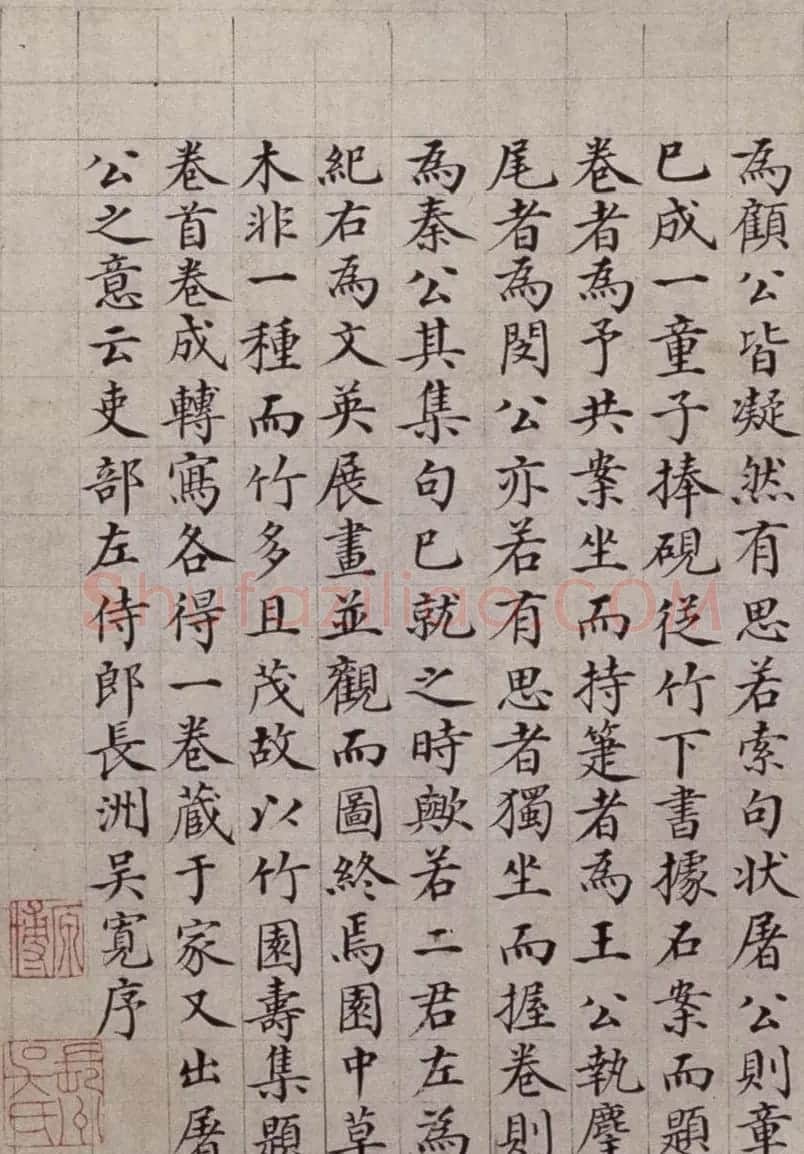 為顧公皆凝然有思若索句狀屠公則章
已成一童子捧硯從竹下書據石案而題
卷者為予共案坐而持箑者為王公執麈
尾者為閔公亦若有思者獨坐而握卷則
為秦公其集句已就之時歟若二君左為
紀右為文英展畫並觀而圖終焉園中草
木非一種而竹多且茂故以竹園壽集題
卷首卷成轉寫各得一卷藏于家又出屠
公之意云吏部左侍郎長洲吳寬序
原博
長洲吳氏
Shufaziliao.COM